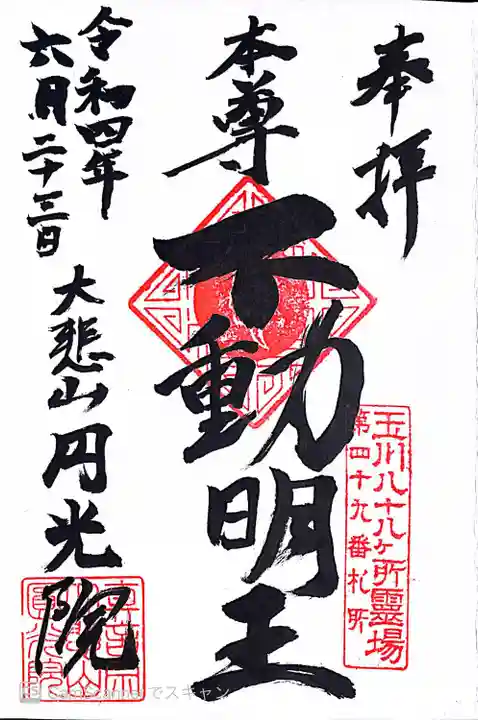 奉拝
玉川八十八ヶ所霊場
第四十九番札所
本尊
不動明王
令和四年
六月二十三日
大悲山円光院
CamScannerでスキャン